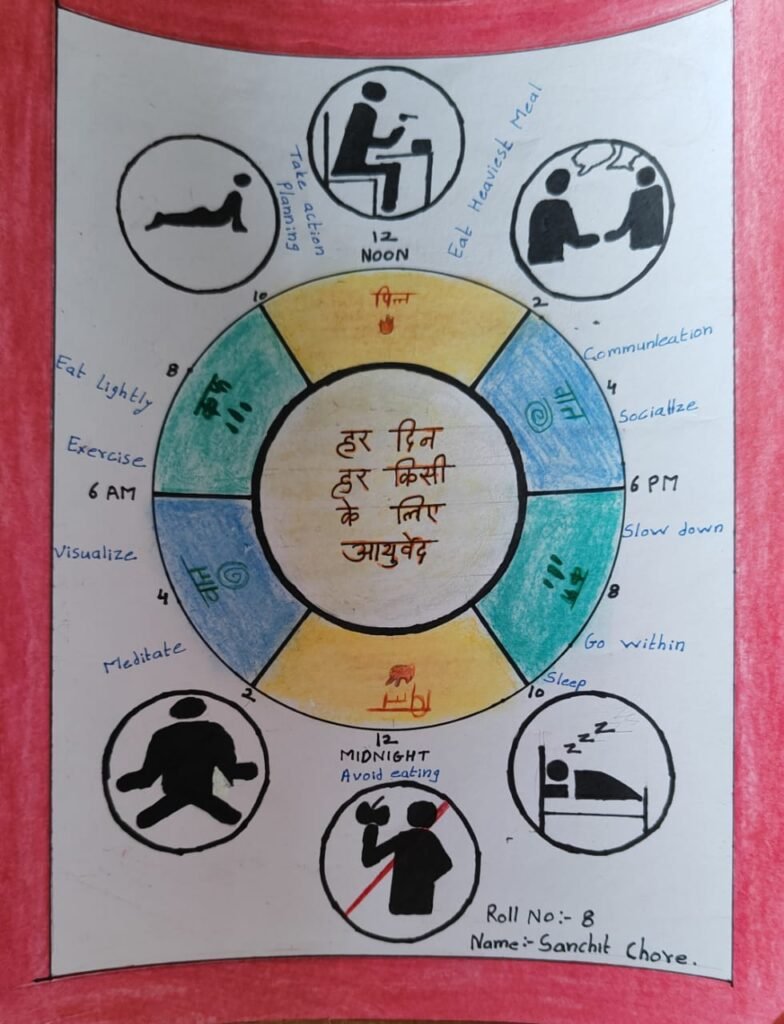 Take action
planning
Eat Heaviest Meal
12
NOON
10
पित्त
2
Communication
8
कफ
वात
4
Eat Lightly
Socialize
हर दिन
हर किसी
के लिए
आयुर्वेद
Exercise
6 AM
6 PM
Slow down
Visualize
वात
कफ
4
8
Meditate
Go within
2
पित्त
10
Sleep
12
MIDNIGHT
Avoid eating
z z z z
Roll No:- 8
Name:- Sanchit Chore.